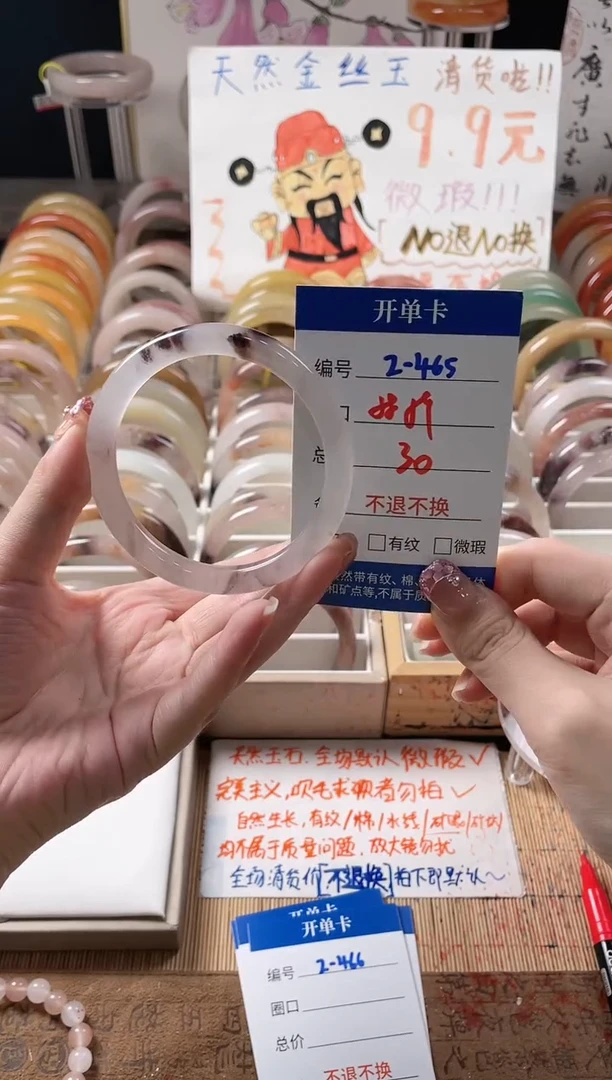 天然金丝玉 清货啦!!
9.9元
微瑕!!!
NO退NO换
开单卡
编号 2-465
30
不退不换
□有纹 □微瑕
然带有纹、棉、
和矿点等,不属于质
天然玉石.全场默认微瑕✓
完美主义,吹毛求疵者勿拍✓
自然生长,有纹/棉/水线/
均不属于质量问题.放大镜勿扰
全场清货价[不退换]拍下即默认~
开单卡
开单卡
编号 2-466
圈口
总价
不退不换